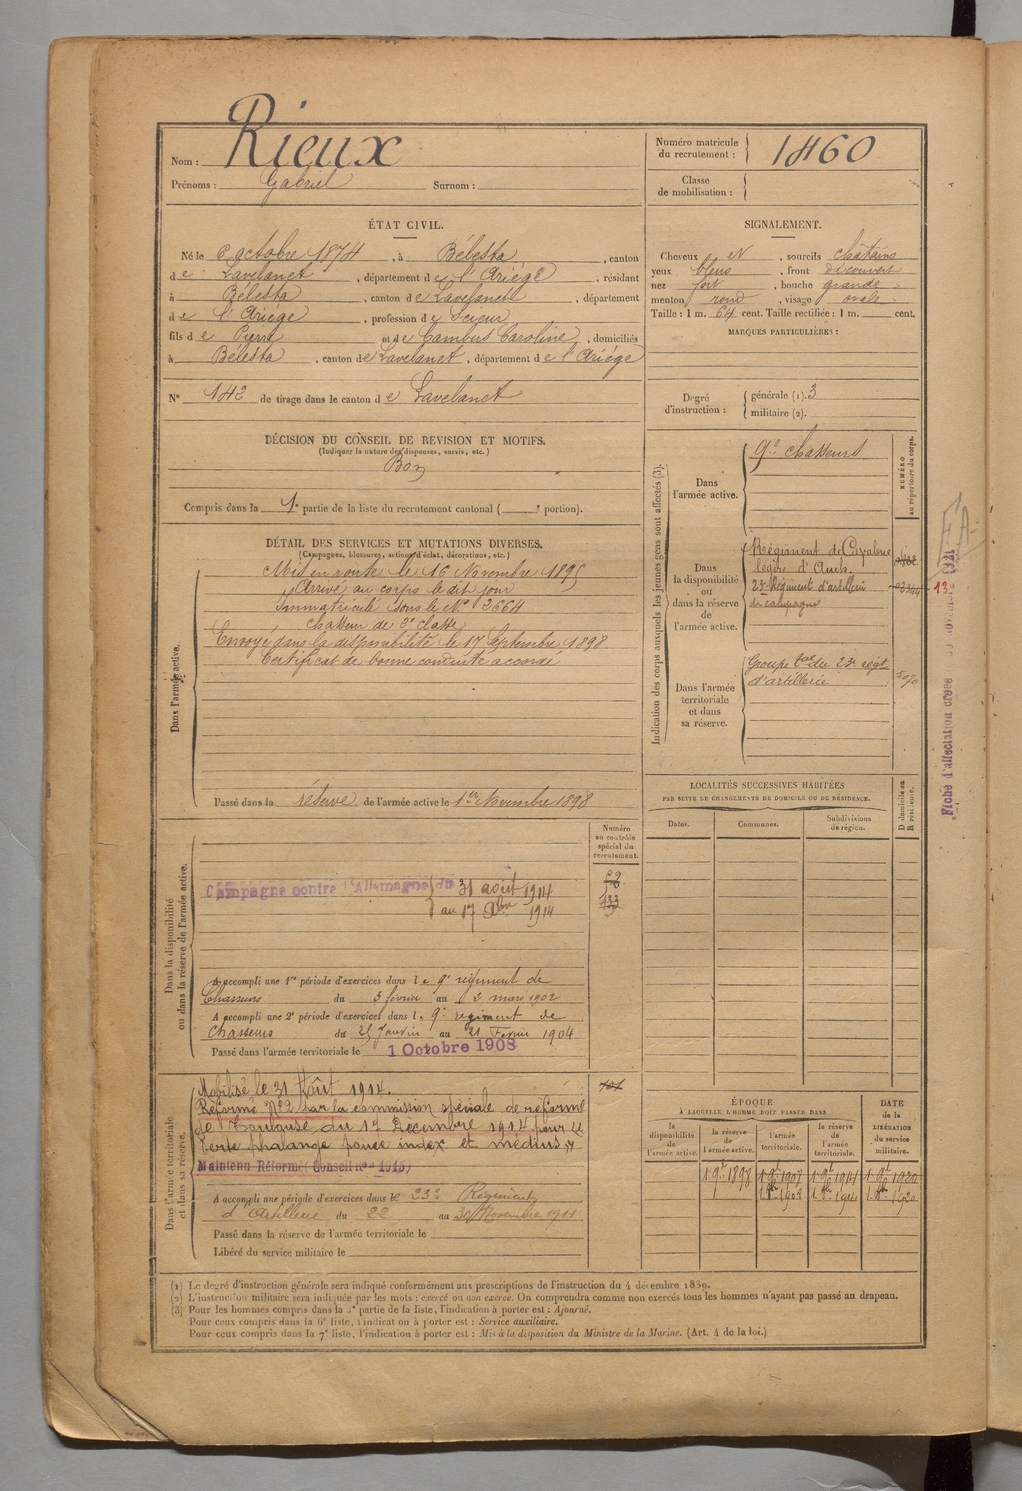 Nom : Rieux
Prénoms : Gabriel Surnom :
Numéro matricule du recrutement : 1460
Classe de mobilisation :
ÉTAT CIVIL.
Né le 6 octobre 1874, à Bélesta, canton
de Lavelanet, département de l'Ariége, résidant
à Bélesta, canton de Lavelanet, département
de l'Ariége, profession de Scieur
fils de Pierre et de Cambus Caroline, domiciliés
à Bélesta, canton de Lavelanet, département de l'Ariége
N° 142 de tirage dans le canton de Lavelanet
DÉCISION DU CONSEIL DE REVISION ET MOTIFS.
(Indiquer la nature des dispenses, sursis, etc.)
Bon
Compris dans la 1e partie de la liste du recrutement cantonal ( e portion).
SIGNALEMENT.
Cheveux N, sourcils châtains
yeux bleus, front découvert
nez fort, bouche grande
menton rond, visage ovale
Taille : 1 m. 64 cent. Taille rectifiée : 1 m. cent.
MARQUES PARTICULIÈRES :
Degré d'instruction : générale (1). 3
militaire (2).
DÉTAIL DES SERVICES ET MUTATIONS DIVERSES.
(Campagnes, blessures, actions d'éclat, décorations, etc.)
Dans l'armée active.
Mis en route le 16 Novembre 1895
Arrivé au corps le dit jour
Immatriculé sous le N° 3664
chasseur de 2e classe
Envoyé dans la disponibilité le 17 Septembre 1898
Certificat de bonne conduite accordé
Passé dans la réserve de l'armée active le 1er Novembre 1898
Indication des corps auxquels les jeunes gens sont affectés (3).
NUMÉRO au répertoire du corps.
Dans l'armée active.
9e chasseurs
Dans la disponibilité ou dans la réserve de l'armée active.
Régiment de Cavalerie
légère d'Auch.
23e Régiment d'artillerie
de campagne
Dans l'armée territoriale et dans sa réserve.
Groupe tal du 23e régt
d'artillerie
Fiche d'affectation
13
LOCALITÉS SUCCESSIVES HABITÉES
PAR SUITE DE CHANGEMENTS DE DOMICILE OU DE RÉSIDENCE.
D domicile ou R résidence.
Dates. Communes. Subdivisions de région.
Numéro au contrôle spécial du recrutement.
Dans la disponibilité ou dans la réserve de l'armée active.
Campagne contre l'Allemagne du 31 août 1914
au 17 Xbre 1914
A accompli une 1re période d'exercices dans le 9e régiment de
Chasseurs du 3 février au 2 mars 1902
A accompli une 2e période d'exercices dans le 9e regiment de
Chasseurs du 25 Janvier au 21 Février 1904
Passé dans l'armée territoriale le 1 Octobre 1908
Dans l'armée territoriale et dans sa réserve.
Mobilisé le 31 Août 1914.
Réformé N°2 par la commission spéciale de réforme
de Toulouse du 17 Décembre 1914 pour
perte phalange pouce index et médius
Maintenu Réformé (Conseil rev 1915)
A accompli une période d'exercices dans le 23e Régiment
d'Artillerie du 22 au 30 Novembre 1911
Passé dans la réserve de l'armée territoriale le
Libéré du service militaire le
ÉPOQUE
À LAQUELLE L'HOMME DOIT PASSER DANS
DATE de la LIBÉRATION du service militaire.
la disponibilité de l'armée active. la réserve de l'armée active. l'armée territoriale. la réserve de l'armée territoriale.
(1) Le degré d'instruction générale sera indiqué conformément aux prescriptions de l'instruction du 4 décembre 1889.
(2) L'instruction militaire sera indiquée par les mots : exercé ou non exercé. On comprendra comme non exercés tous les hommes n'ayant pas passé au drapeau.
(3) Pour les hommes compris dans la 5e partie de la liste, l'indication à porter est : Ajourné.
Pour ceux compris dans la 6e liste, l'indication à porter est : Service auxiliaire.
Pour ceux compris dans la 7e liste, l'indication à porter est : Mis à la disposition du Ministre de la Marine. (Art. 4 de la loi.)